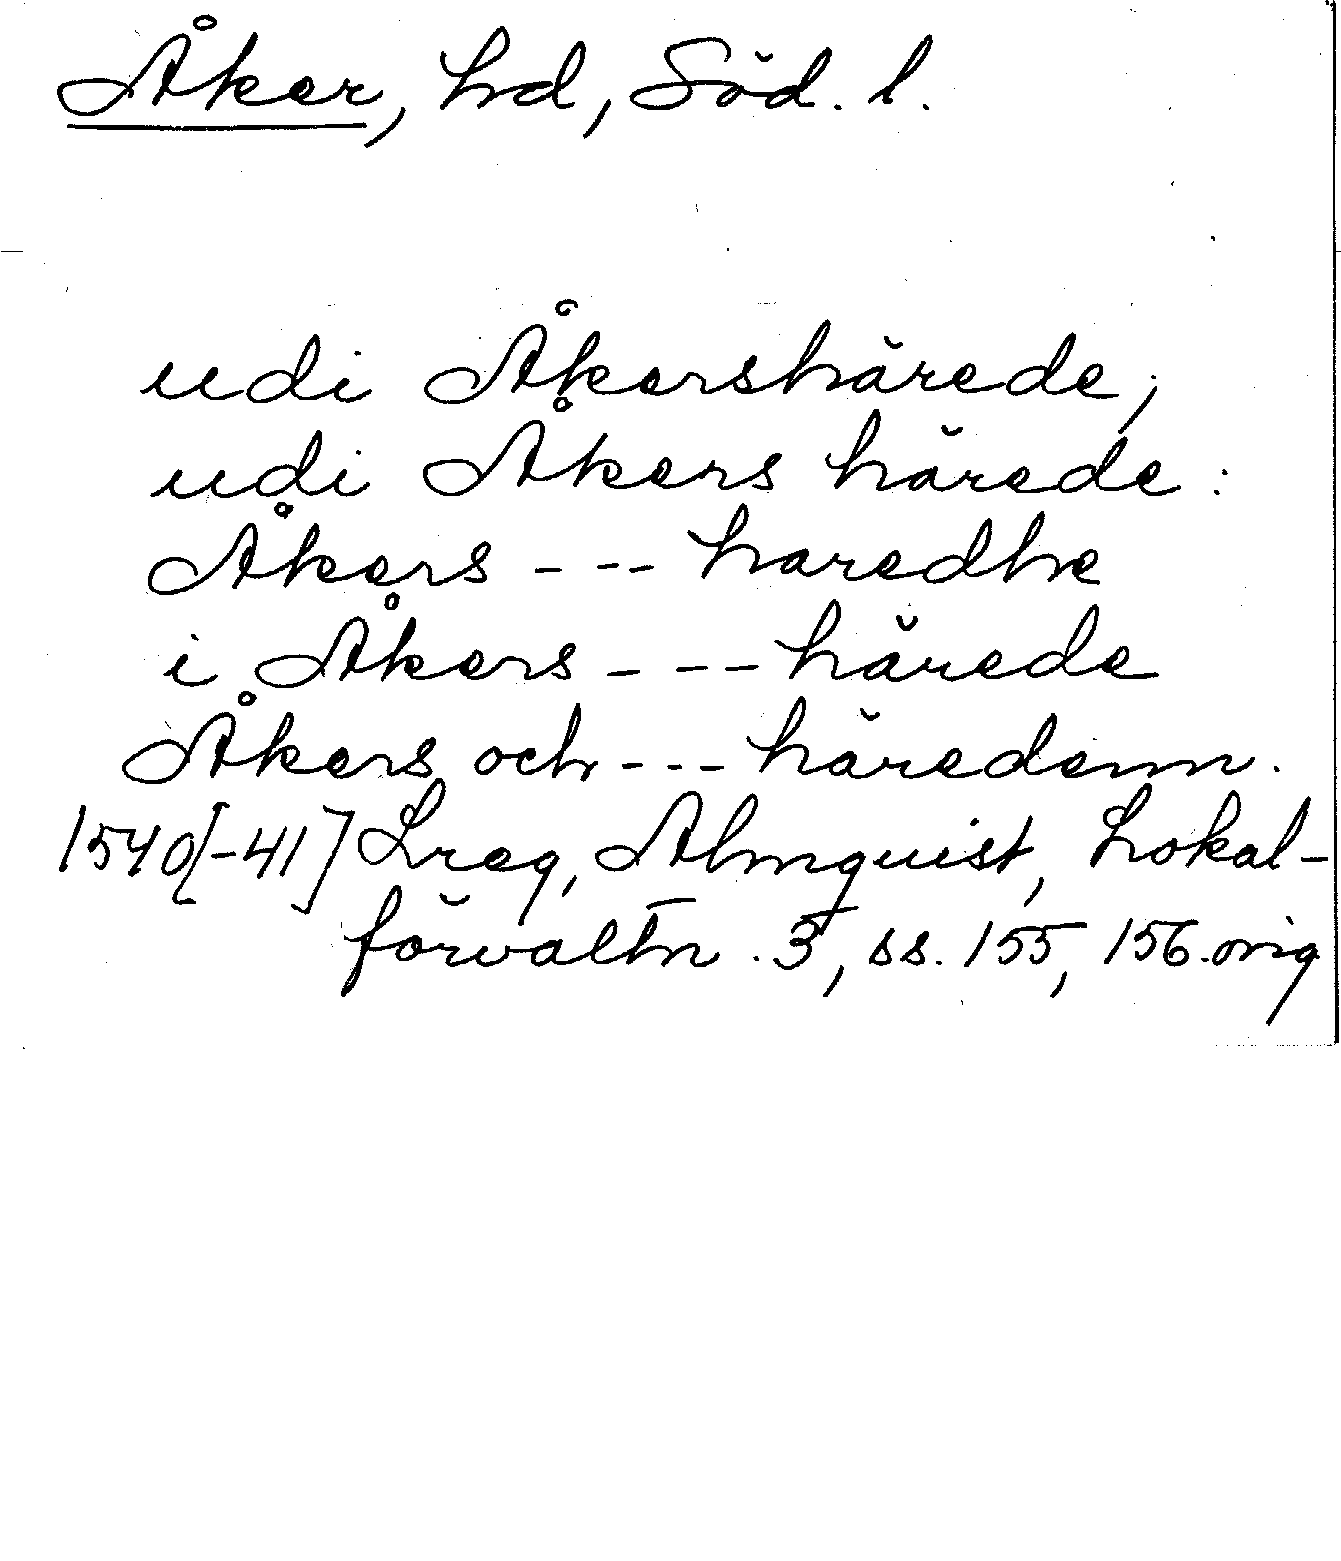 Åker, hd, Söd. l.
udi Åkershärede,
udi Åkers härede:
Åkers --- haredhe
i Åkers --- härede
Åkers och --- häredenn.
1540[-41] Lreg, Almquist, Lokal-
förvaltn. 3, ss. 155, 156. orig